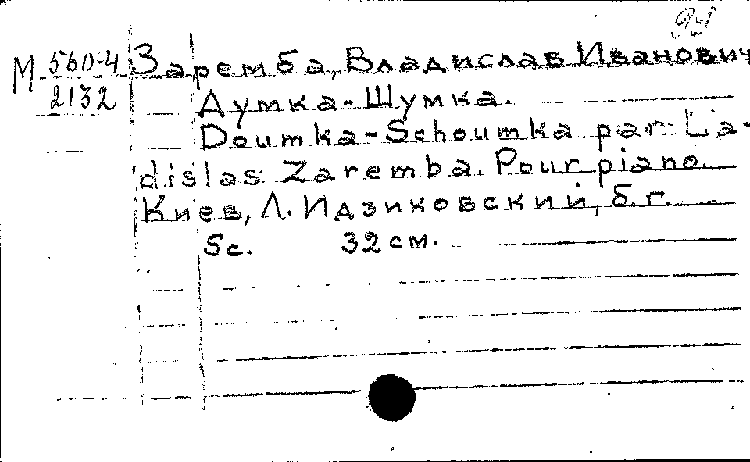 М 560-4
2132
Заремба, Владислав Иванович
Думка-Шумка.
Doumka-Schoumka par La-
dislas Zaremba. Pour piano.
Киев, Л. Идзиковский, б.г.
5с. 32см.